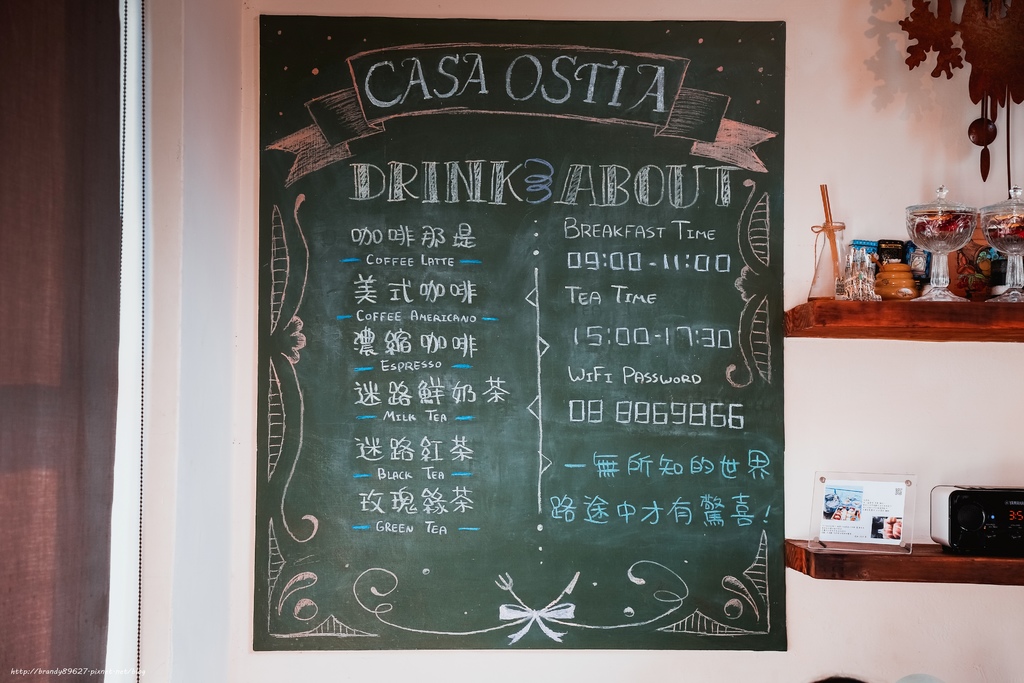 CASA OSTIA
DRINK & ABOUT
咖啡那是
COFFEE LATTE
美式咖啡
COFFEE AMERICANO
濃縮咖啡
ESPRESSO
迷路鮮奶茶
MILK TEA
迷路紅茶
BLACK TEA
玫瑰綠茶
GREEN TEA
BREAKFAST TIME
09:00-11:00
TEA TIME
15:00-17:30
WIFI PASSWORD
08 8869866
一無所知的世界
路途中才有驚喜!
http://brandy89627.pixnet.net/blog